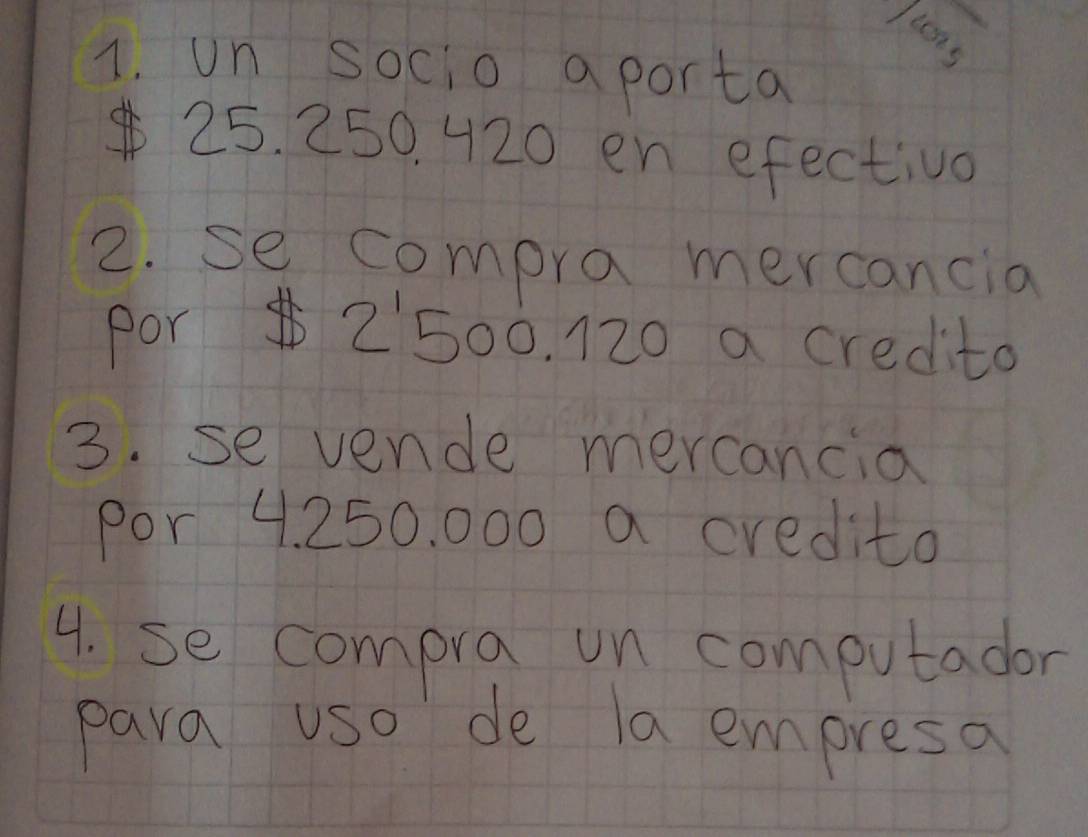 1. un socio aporta
$ 25.250.420 en efectivo
2. se compra mercancia
por $ 2'500.120 a credito
3. se vende mercancia
por 4.250.000 a credito
4. se compra un computador
para uso de la empresa